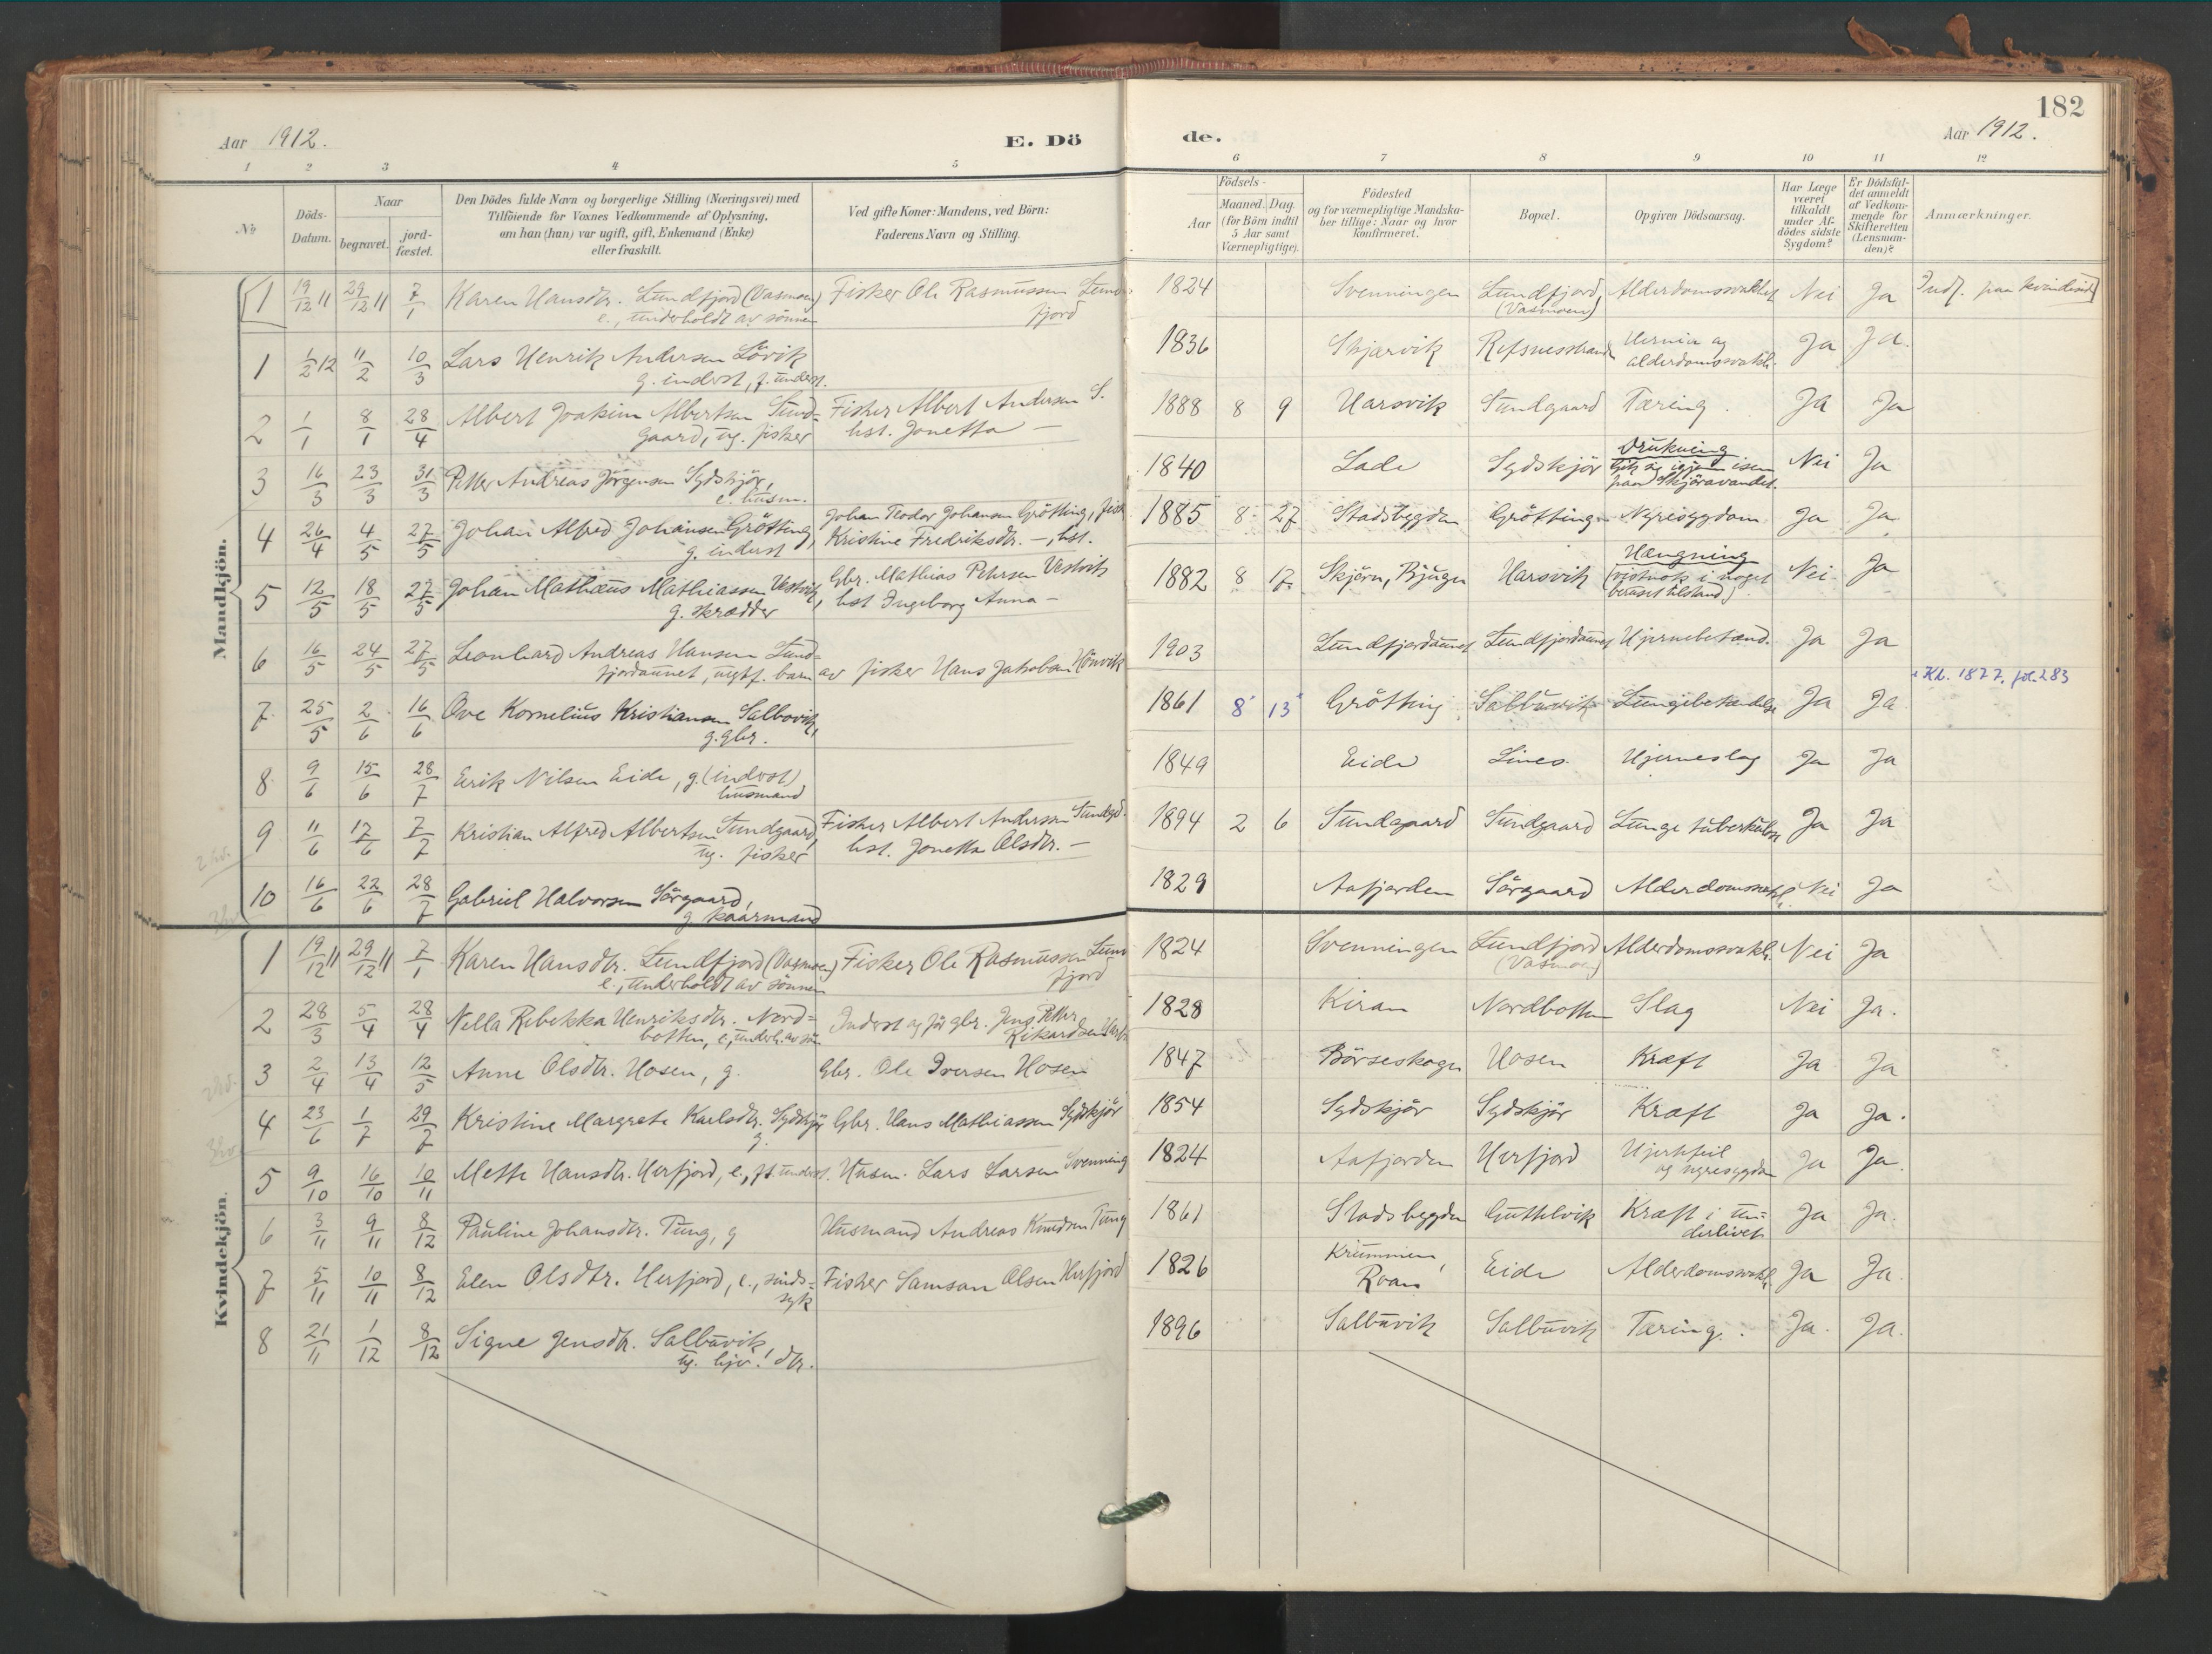 182
Aar 1912.
E. Döde.
Aar 1912.
1 2 3 4 5 6 7 8 9 10 11 12
No
Döds-Datum.
Naar
begravet.
jord-fæstet.
Den Dödes fulde Navn og borgerlige Stilling (Næringsvei) med
Tilföiende for Voxnes Vedkommende af Oplysning,
om han (hun) var ugift, gift, Enkemand (Enke)
eller fraskilt.
Ved gifte Koner: Mandens, ved Börn:
Faderens Navn og Stilling.
Födsels-
Aar
Maaned. Dag.
(for Börn indtil
5 Aar samt
Værnepligtige).
Födested
og for værnepligtige Mandska-
ber tillige: Naar og hvor
konfirmeret.
Bopæl.
Opgiven Dödsaarsag.
Har Læge
været
tilkaldt
under Af-
dödes sidste
Sygdom?
Er Dödsfal-
det anmeldt
af Vedkom-
mende for
Skifteretten
(Lensman-
den)?
Anmærkninger.
Mandkjön.
[1 19/12 11 29/12 11 7/1 Karen Hansdtr. Lundfjord (Vasmoen) Fisker Ole Rasmussen 1824 Svenningen Lundfjord, Alderdomssvakhet Nei Ja Indf. paa kvindesid]
e., underholdt av sönnen fjord (Vasmoen)
1 1/2 12 11/2 10/3 Lars Henrik Andersen Lövik 1836 Skjærvik Refsnesstrand og Ja Ja.
g. inderst, f. underst. alderdomssvakh.
2 1/1 8/1 28/4 Albert Joakim Albertsen Sund= Fisker Albert Andersen S. 1888 8 9 Harsvik Sundgaard Tæring. Ja Ja
gaard, ug. fisker hst. Jonetta —
3 16/3 23/3 31/3 Petter Andreas Jörgensen Sydskjör, 1840 Lade Sydskjör Drukning Nei Ja
e. husm. Gik sig igjennem isen
paa Skjöravandet.
4 26/4 4/5 27/5 Johan Alfred Johansen Grötting, Johan Teodor Johansen Grötting, fisk 1885 8 27 Stadsbygden Grötting Nyresygdom Ja Ja
g. inderst Kristine Fredriksdtr. —, hst.
5 12/5 18/5 27/5 Johan Mathæus Mathiassen Vestvik, Gbr. Mathias Petersen Vestvik 1882 8 17 Skjörn, Bjugn Harsvik Hængning Nei Ja
g. skrædder hst Ingeborg Anna — (vistnok i noget
beruset tilstand)
6 16/5 24/5 27/5 Leonhard Andreas Hansen Lund= 1903 Lundfjordaunet Lundfjordaunet Hjernebetænd. Ja Ja
fjordaunet, uegtf. barn av fisker Hans Jakobsen Hönvik
Kl. 1877, fol. 283
7 25/5 2/6 16/6 Ove Kornelius Kristiansen Salbuvik, 1861 8 13 Grötting Salbuvik Lungebetændelse Ja Ja
g. gbr.
8 9/6 15/6 28/7 Erik Nilsen Eide, g. (inderst) 1849 Eide Lines Hjerneslag Ja Ja
husmand
9 11/6 17/6 7/7 Kristian Alfred Albertsen Sundgaard, Fisker Albert Andersen Sundgd. 1894 2 6 Sundgaard Sundgaard Lungetuberkulose Ja Ja
ug. fisker hst. Jonetta Olsdtr. —
10 16/6 22/6 28/7 Gabriel Halvorsen Sörgaard, 1829 Aafjorden Sörgaard Alderdomssvakh. Nei Ja
g. kaarmand
Kvindekjön.
1 19/12 11 29/12 11 7/1 Karen Hansdtr. Lundfjord (Vasmoen) Fisker Ole Rasmussen Lund 1824 Svenningen Lundfjord Alderdomssvakh. Nei Ja
e., underholdt av sönnen fjord (Vasmoen)
2 28/3 5/4 28/4 Nella Rebekka Henriksdtr. Nord= Inderst og för gbr. Jens Petter 1828 Kiran Nordbotten Slag Nei Ja.
botten, e., underh. av sön Rikardsen
3 2/4 13/4 12/5 Anne Olsdtr. Hosen, g. Gbr. Ole Iversen Hosen 1847 Börseskogn Hosen Kræft Ja Ja
4 23/6 1/7 29/7 Kristine Margrete Karlsdtr. Sydskjör Gbr. Hans Mathiassen Sydskjör 1854 Sydskjör Sydskjör Kræft Ja Ja.
g.
5 9/10 16/10 10/11 Mette Hansdtr. Herfjord, e., f. underst. Husm. Lars Larsen Svenning 1824 Aafjorden Herfjord Hjertefeil Ja Ja.
og nyresygdom
6 3/11 9/11 8/12 Pauline Johansdtr. Tung, g Husmand Andreas Knudsen Tung 1861 Stadsbygden Guttelvik Kræft i un= Ja Ja.
derlivet
7 5/11 10/11 8/12 Elen Olsdtr. Herfjord, e., sinds= Fisker Samson Olsen Herfjord 1826 Krummen, Eide Alderdomssvakh. Ja Ja.
syk Roan
8 21/11 1/12 8/12 Signe Jensdtr. Salbuvik, 1896 Salbuvik Salbuvik Tæring. Ja. Ja.
ug. hjv. dtr.